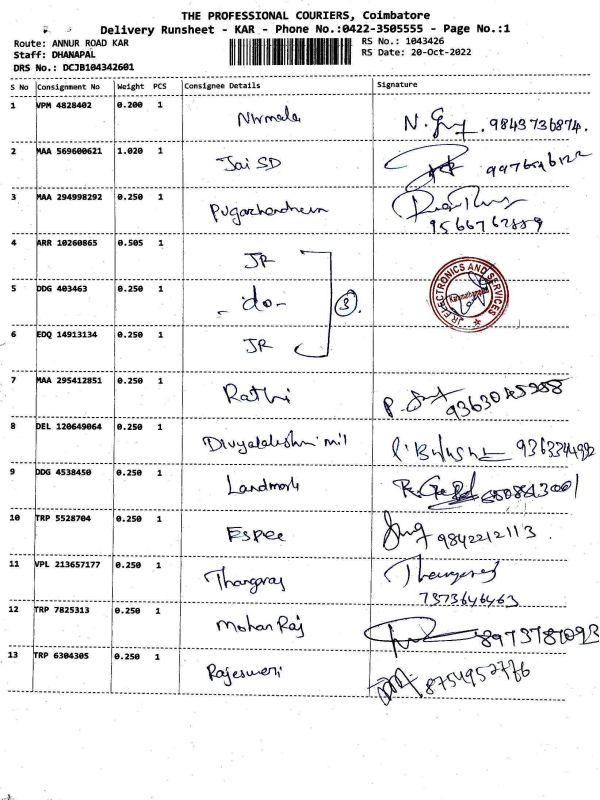 THE PROFESSIONAL COURIERS, Coimbatore
Delivery Runsheet - KAR - Phone No.:0422-3505555 - Page No.:1
Route: ANNUR ROAD KAR RS No.: 1043426
Staff: DHANAPAL RS Date: 20-Oct-2022
DRS No.: DCJB104342601
S No Consignment No Weight PCS Consignee Details Signature
1 VPM 4828402 0.200 1 Nirmala N. 9843736874.
2 MAA 569600621 1.020 1 Jai SD
3 MAA 294998292 0.250 1 Pugazhendhiran
9566762889
4 ARR 10260865 0.505 1 JR
5 DDG 403463 0.250 1 -do- 3 JR ELECTRONICS AND SERVICES
6 EDQ 14913134 0.250 1 JR
7 MAA 295412851 0.250 1 Rathi P.
8 DEL 120649064 0.250 1 Divyalakshmi mil
9 DDG 4538450 0.250 1 Landmark
10 TRP 5528704 0.250 1 Espee 9842212113.
11 VPL 213657177 0.250 1 Thangaraj Thangaraj
7373646463
12 TRP 7825313 0.250 1 Mohan Raj 8973787093
13 TRP 6304305 0.250 1 Rajesweri 8754952776